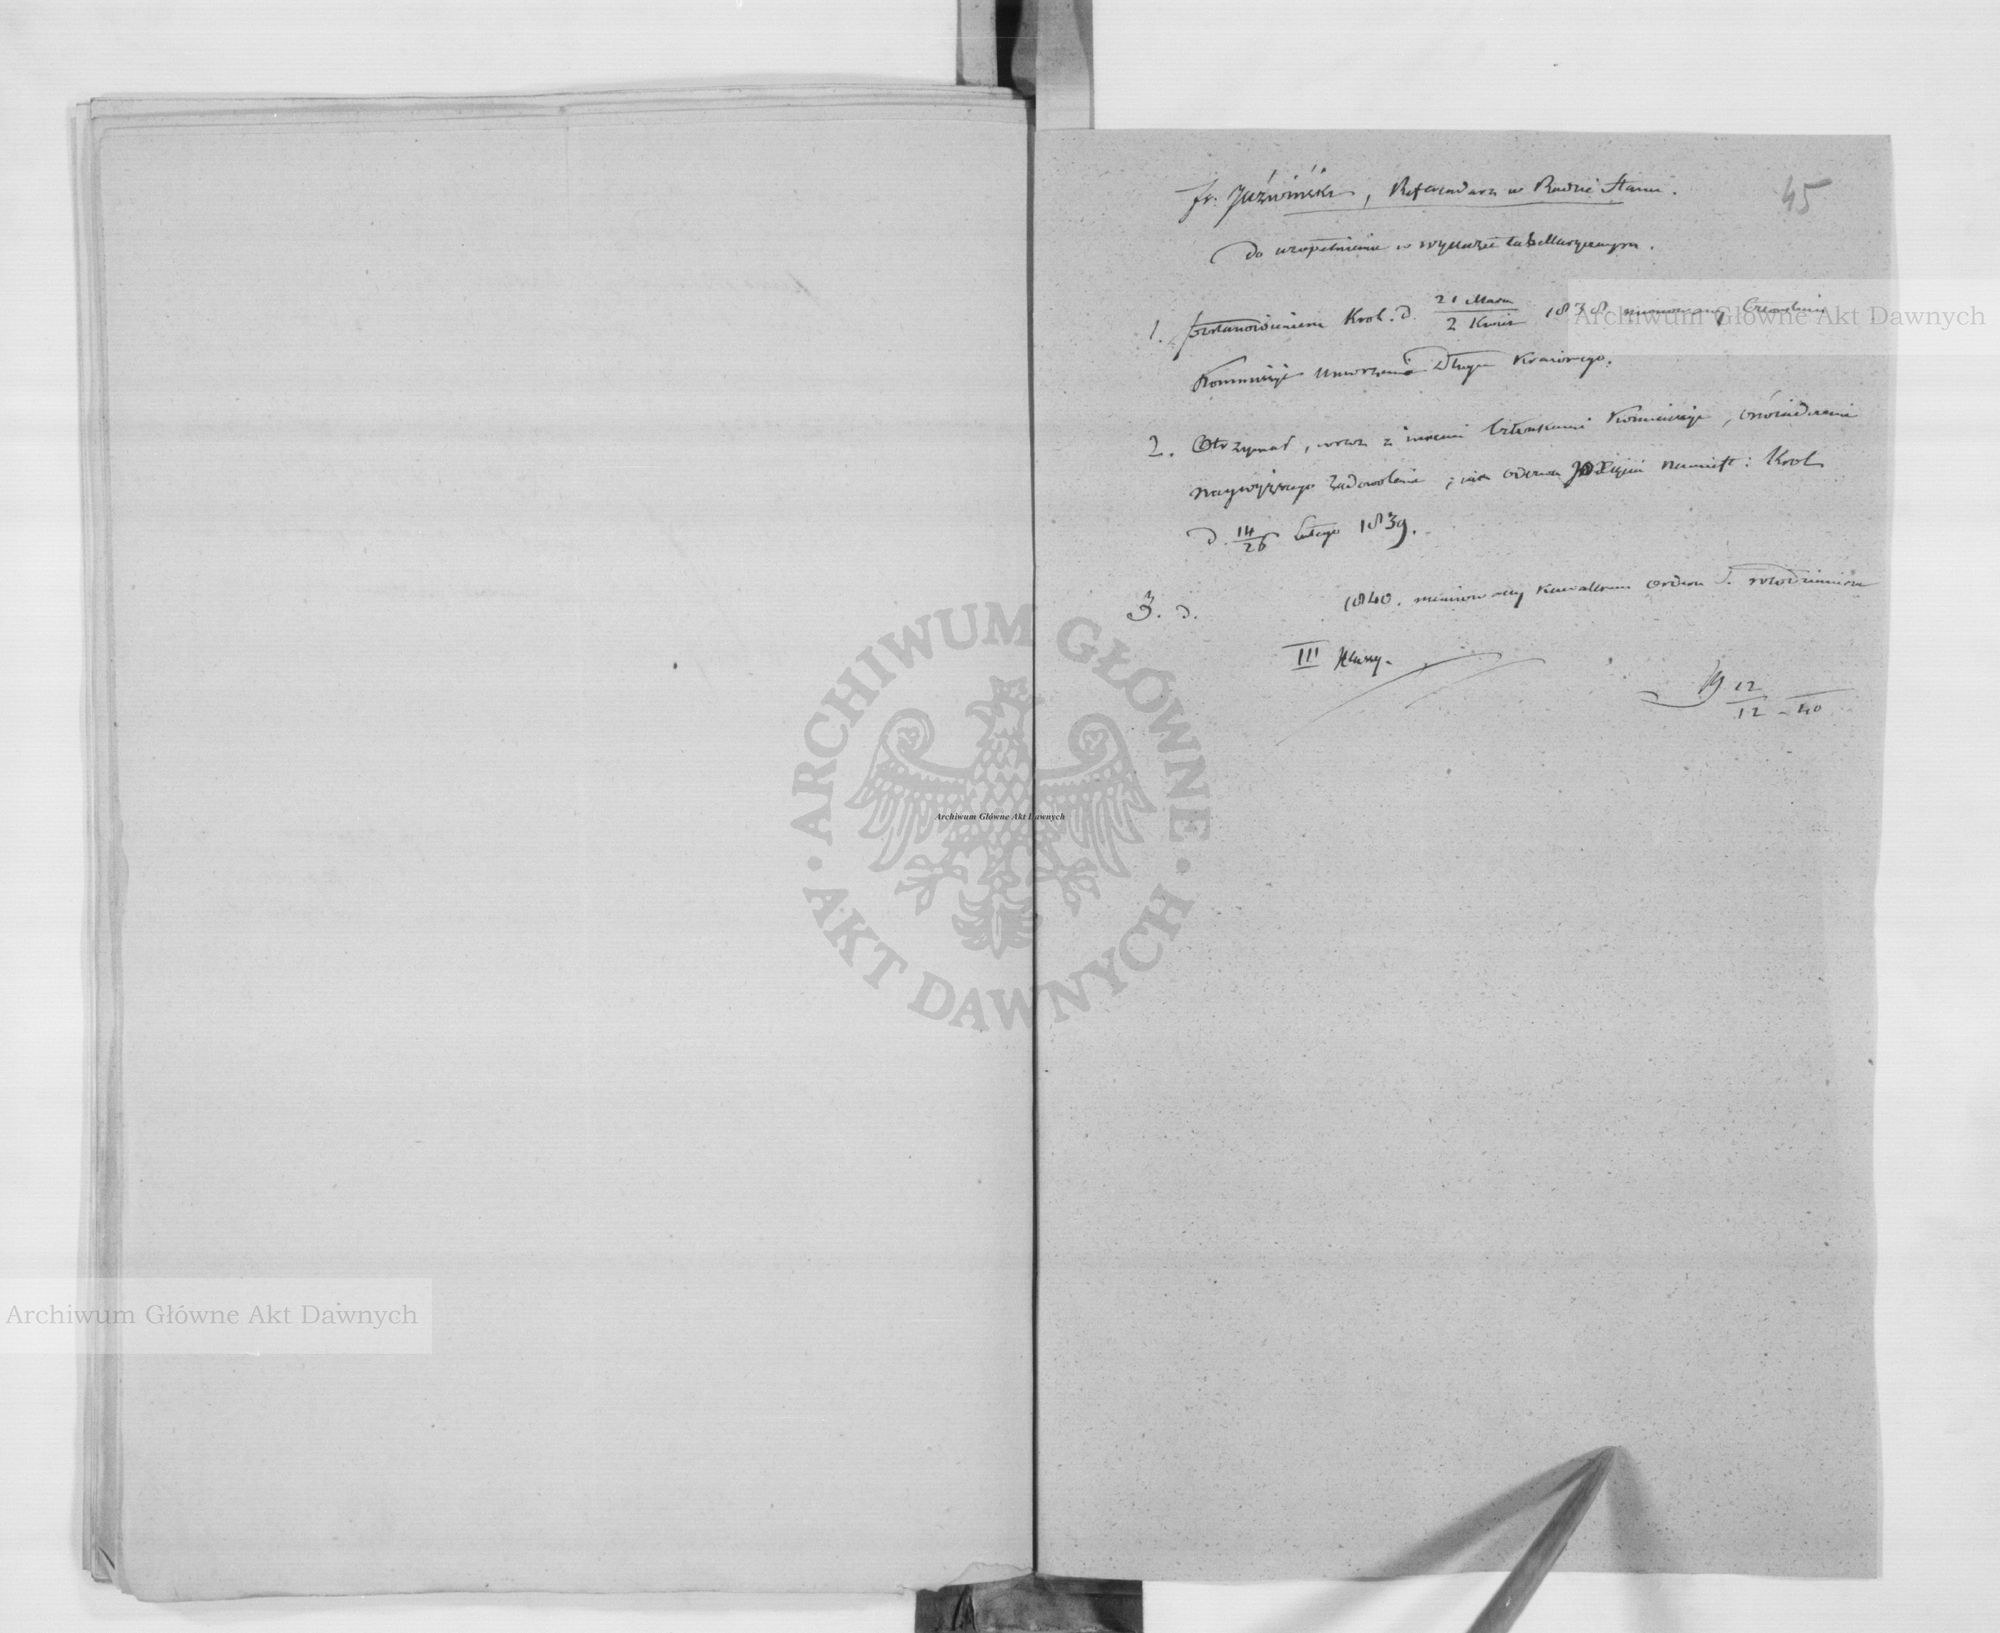 45
Fr: Jaźwiński, Referendarz w Radzie Stanu.
do uzupełnienia w wykazie tabellarycznym.
1. postanowieniem Król. d. 21 Marca / 2 Kwiet 1838 mianowany Członkiem
Kommissyi Umorzenia Długu Krajowego.
2. Otrzymał, wraz z innemi Członkami Kommissyi, oświadczenie
najwyższego zadowolenia, Xięcia Namiest: Król
d. 14/26 Lutego 1839.
3. d. 1840. mianowany Kawalerem orderu S. Włodzimierza
III Klassy.
12/12 - 40
ARCHIWUM GŁÓWNE
· AKT DAWNYCH ·
Archiwum Główne Akt Dawnych
Archiwum Główne Akt Dawnych
Archiwum Główne Akt Dawnych